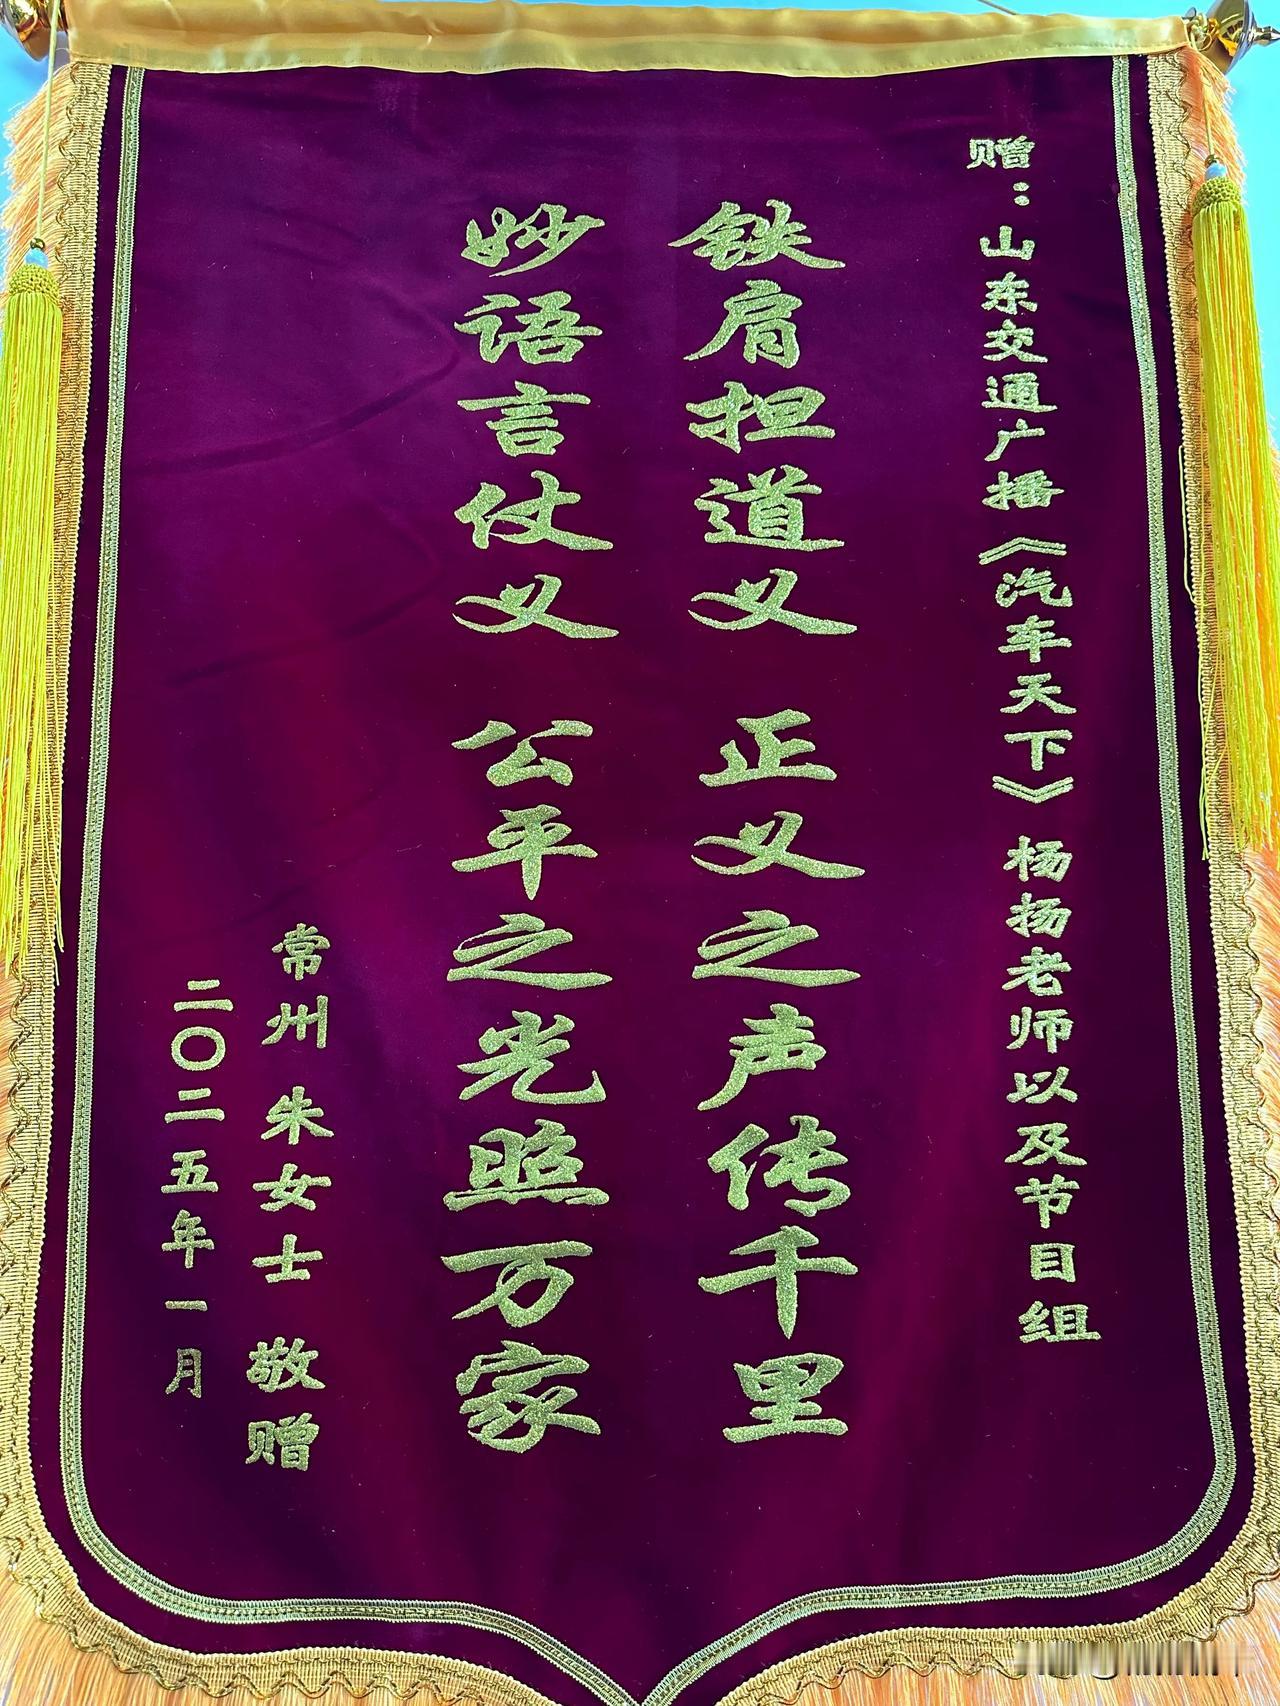 赠：山东交通广播《汽车天下》杨扬老师以及节目组
铁肩担道义 正义之声传千里
妙语言仗义 公平之光照万家
常州 朱女士 敬赠
二〇二五年一月